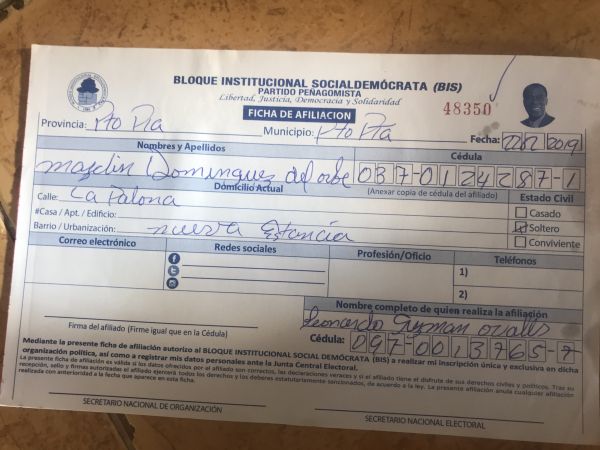 BLOQUE INSTITUCIONAL SOCIALDEMÓCRATA (BIS)
PARTIDO PEÑAGOMISTA
Libertad, Justicia, Democracia y Solidaridad
48350
FICHA DE AFILIACION
Provincia: Pto Pta Municipio: Pto Pta Fecha: 2019
Nombres y Apellidos Cédula
Dominguez del orbe 037-0124287-1
Domicilio Actual (Anexar copia de cédula del afiliado) Estado Civil
Calle: La Paloma Casado
#Casa / Apt. / Edificio: Soltero
Barrio / Urbanización: nueva Estancia Conviviente
Correo electrónico Redes sociales Profesión/Oficio Teléfonos
1)
2)
Nombre completo de quien realiza la afiliación
Leonardo Guzman
Firma del afiliado (Firme igual que en la Cédula) Cédula: 097-0013765-7
Mediante la presente ficha de afiliación autorizo al BLOQUE INSTITUCIONAL SOCIAL DEMÓCRATA (BIS) a realizar mi inscripción única y exclusiva en dicha
organización política, así como a registrar mis datos personales ante la Junta Central Electoral.
La presente ficha de afiliación es válida si los datos ofrecidos por el afiliado son correctos, las declaraciones veraces y si el afiliado tiene el disfrute de sus derechos civiles y políticos. Tras su
recepción, sello y firmas autorizadas el afiliado ejercerá todos los derechos y los deberes estatutariamente sancionados, de acuerdo a la ley. La presente afiliación anula cualquier afiliación
realizada con anterioridad a la fecha que aparece en esta ficha.
SECRETARIO NACIONAL DE ORGANIZACIÓN SECRETARIO NACIONAL ELECTORAL